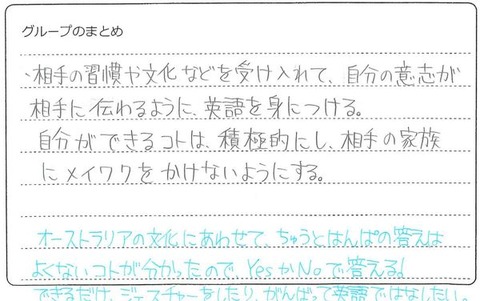 グループのまとめ
・相手の習慣や文化などを受け入れて、自分の意志が
相手に伝わるように、英語を身につける。
自分ができるコトは、積極的にし、相手の家族
にメイワクをかけないようにする。
オーストラリアの文化にあわせて、ちゅうとはんぱの答えは
よくないコトが分かったので、YesかNoで答える!
できるだけ、ジェスチャーをしたり、がんばって英語ではなしたい。